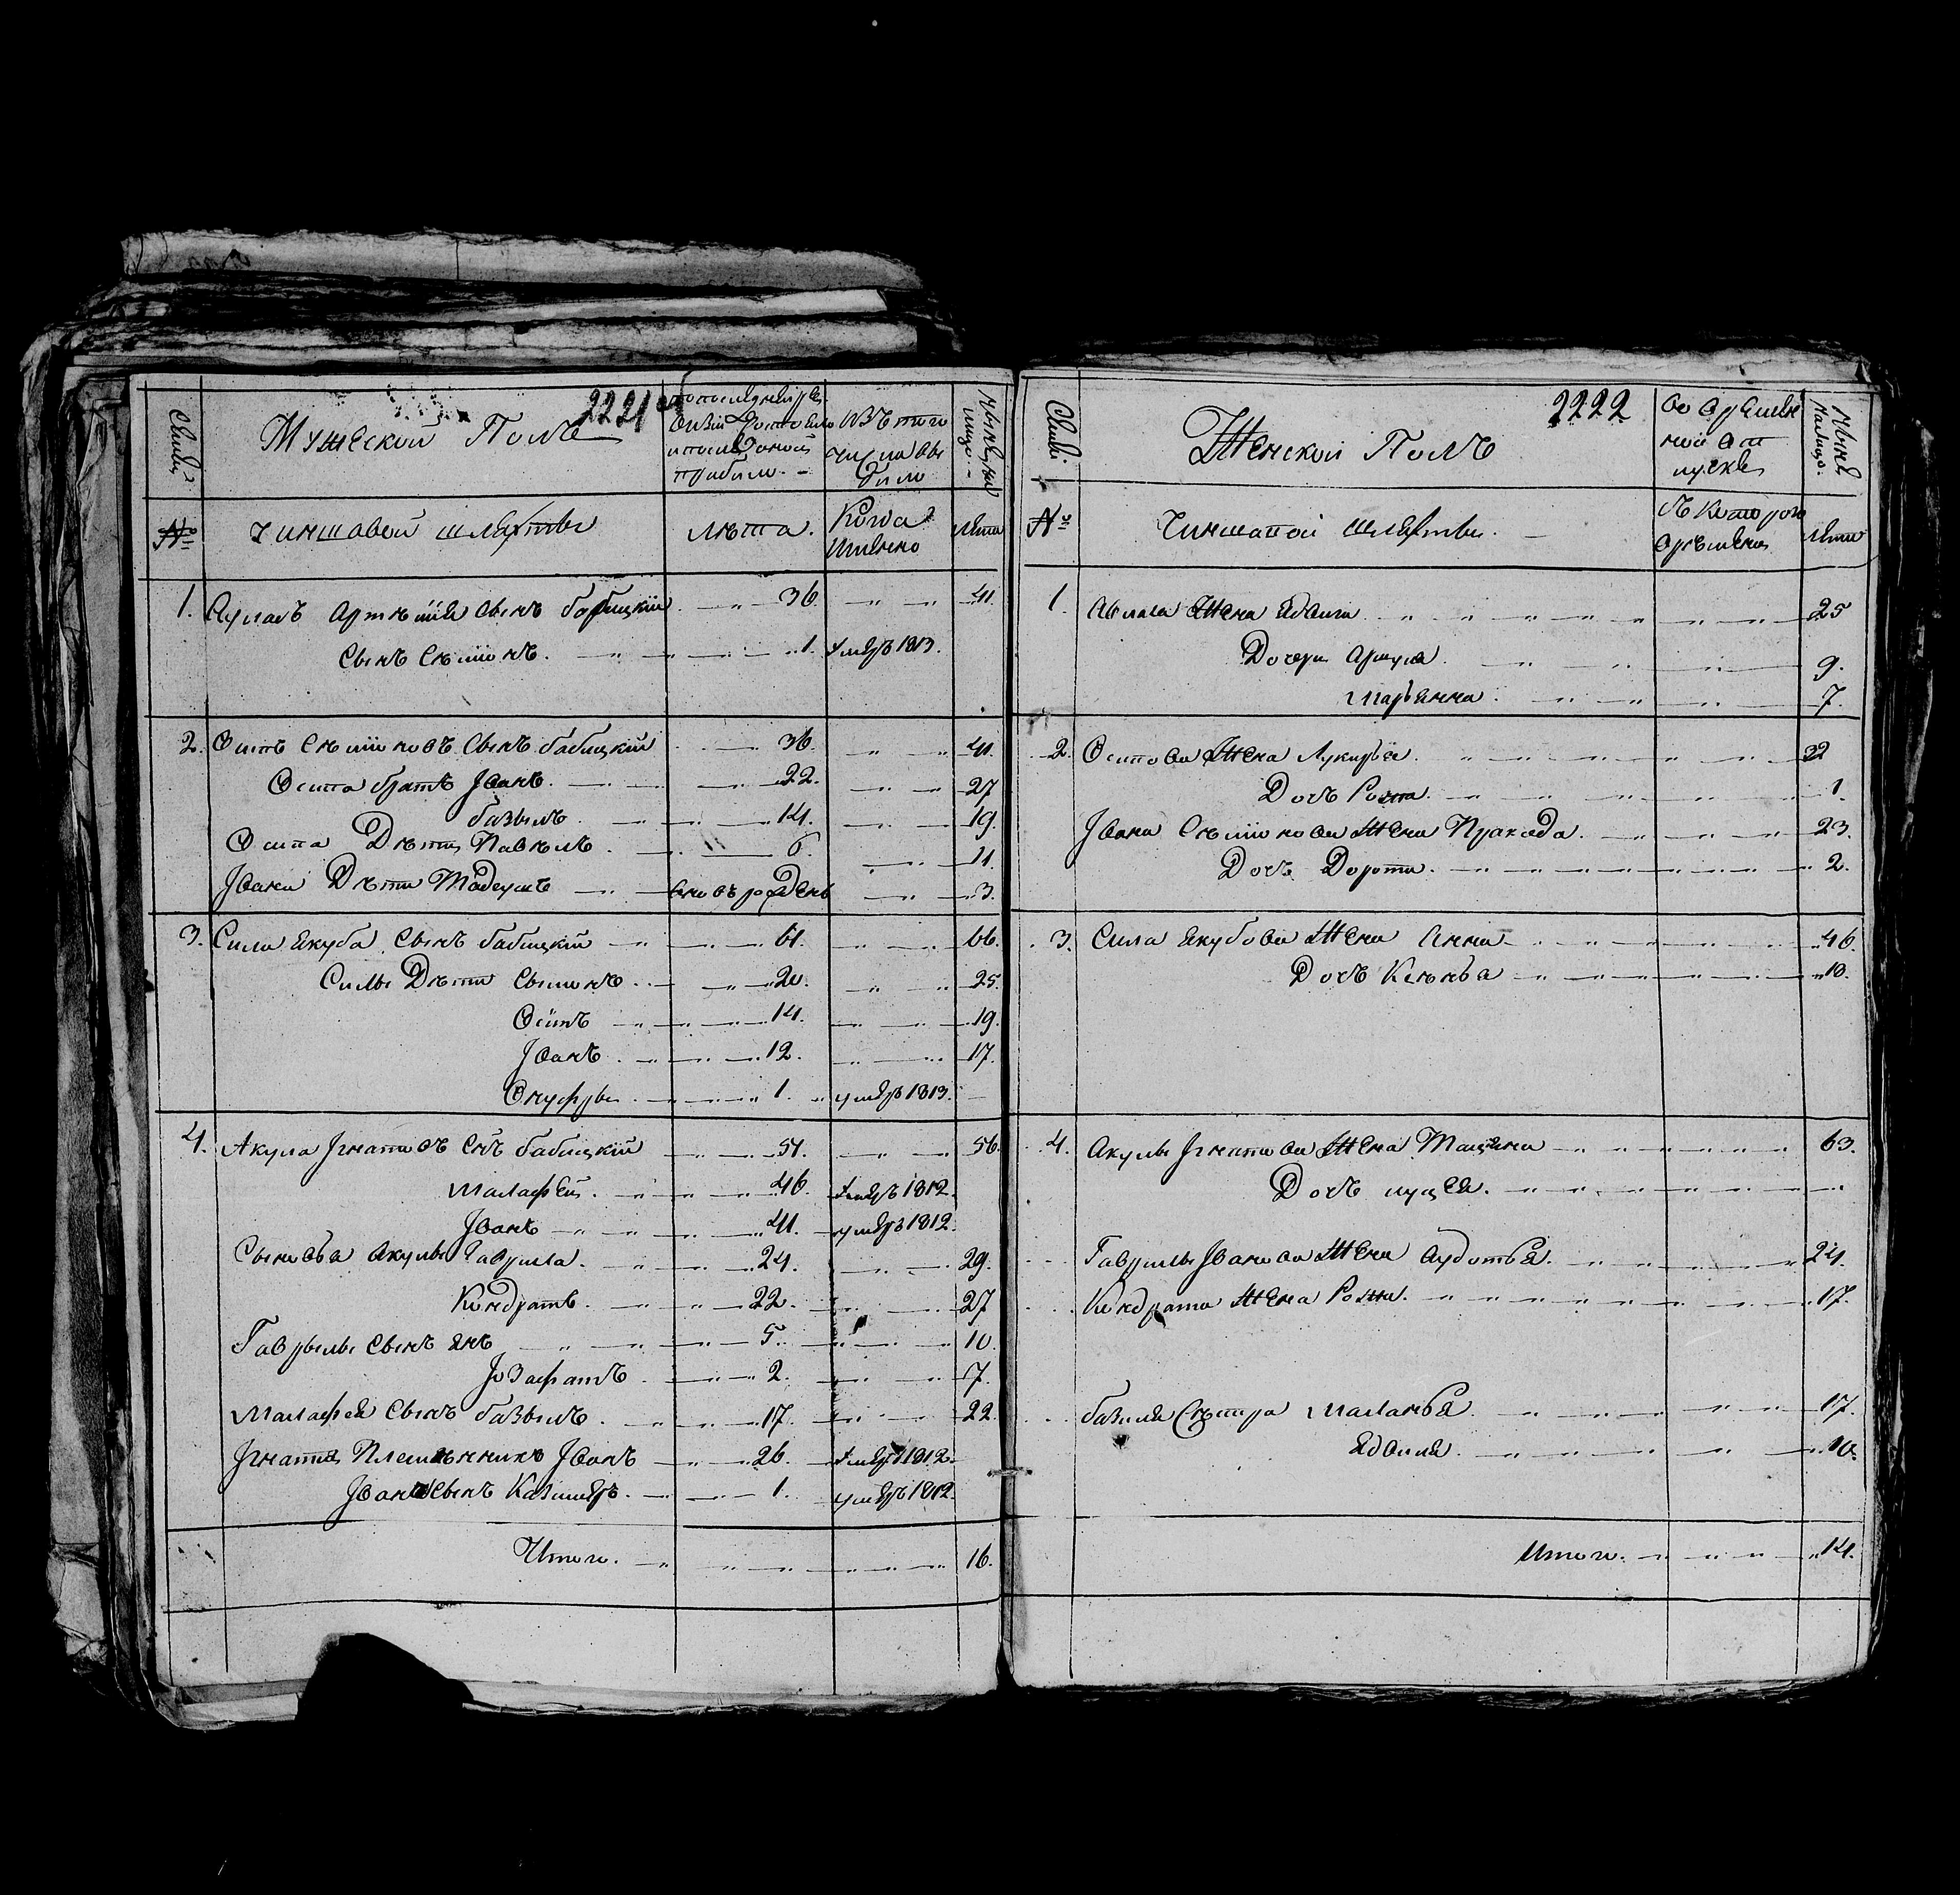 2221
Семьи
Мужеской Полъ
изъ того числа выбыло
№
чиншовой шляхты
Лѣта.
Когда Имянно
Лѣта
1. Аѵламъ Артемія Сынъ бабицкій 36. 41.
Сынъ Сѣміонъ. 1. Умеръ 1813.
2. Осипъ Сѣміоновъ Сынъ бабицкій 36. 41.
Осипа братъ Іванъ. 22. 27
базыль. 14. 19.
Осипа Дѣти Павѣлъ. 6. 11.
Івана Дѣти Тадеушъ вновь рожденъ 3.
3. Сила Якуба Сынъ бабицкій 61. 66.
Силы Дѣти Сымонъ. 20. 25.
Осипъ 14. 19.
Іванъ. 12. 17.
Онуфры. 1. умеръ 1813.
4. Акула Ігнатовъ Снъ бабицкій 51. 56.
Малафей. 46. Умеръ 1812.
Іванъ 41. умеръ 1812.
Сыновья Акулы Гаврила. 24. 29.
Кондратъ. 22. 27
Гаврылы Сынъ Янъ 5. 10.
Іозафатъ. 2. 7.
Малафея Сынъ базыль. 17. 22.
Ігнатія Племянникъ Іванъ 26. Умеръ 1812.
Івана Сынъ Казимеръ. 1. умеръ 1812.
Итого. 16.
2222
Семьи
Женской Полъ
во временной отлучке
Нынѣ на лицо.
№
Чиншовой шляхты.
Съ котораго времени
Лѣта
1. Авлама Жена Ядвига 25
Дочери Аршула. 9.
Марьянна. 7.
2. Осипова Жена Лукирья. 32
Дочь Рожа. 1.
Івана Сѣміонова Жена Праксѣда. 23.
Дочь Дорота. 2.
3. Сила Якубова Жена Анна 46.
Дочь Ксенья 10.
4. Акулы Ігнатова Жена Тацяна 63.
Дочь луцея.
Гаврилы Іванова Жена Аудотья. 24.
Кондрата Жена Рожа. 17.
базыля Сѣстра Маланья. 17.
Ядвиля. 10.
Итого. 14.